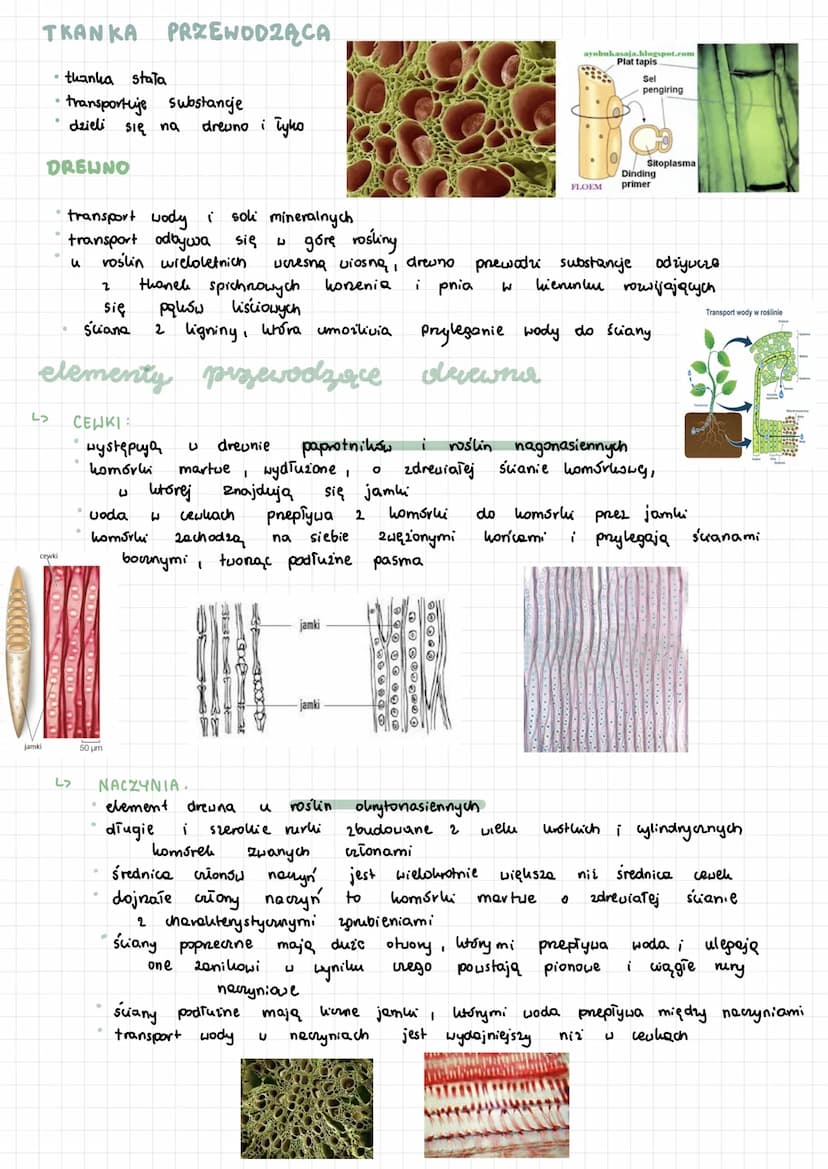 TKANKA PRZEWODZĄCA
tkanka stała
transportuje substancje
dzieli się na drewno i łyko
ayobukasaja.blogspot.com
Plat tapis
Sel
pengiring
Sitoplasma
Dinding
primer
FLOEM
DREWNO
transport wody i soli mineralnych
transport odbywa się w górę rośliny
u roślin wieloletnich wczesną wiosną, drewno przewodzi substancje odżywcze
z tkanek spichrzowych korzenia i pnia w kierunku rozwijających
się pąków liściowych
ściana z ligniny, która umożliwia przyleganie wody do ściany
Transport wody w roślinie
elementy przewodzące drewna
↳ CEWKI:
występują w drewnie paprotników i roślin nagonasiennych
komórki martwe, wydłużone, o zdrewiałej ścianie komórkowej,
w której znajdują się jamki
woda w cewkach przepływa z komórki do komórki przez jamki
komórki zachodzą na siebie zwężonymi końcami i przylegają ścianami
bocznymi, tworząc podłużne pasma
cewki
jamki
50 µm
jamki
jamki
↳ NACZYNIA.
element drewna u roślin okrytonasiennych
długie i szerokie rurki zbudowane z wielu krótkich i cylindrycznych
komórek zwanych członami
średnica członów naczyń jest wielokrotnie większa niż średnica cewek
dojrzałe człony naczyń to komórki martwe o zdrewiałej ścianie
z charakterystycznymi zgrubieniami
ściany poprzeczne mają duże otwory, którymi przepływa woda i ulegają
one zanikowi w wyniku czego powstają pionowe i ciągłe rury
naczyniowe
ściany podłużne mają liczne jamki, którymi woda przepływa między naczyniami
transport wody w naczyniach jest wydajniejszy niż w cewkach